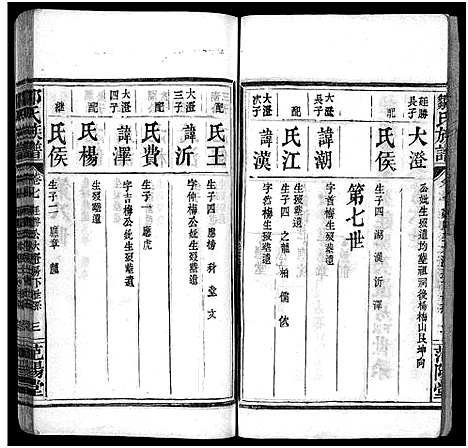 鄒氏族譜
廷勝長子
大澄
公妣生歿葬遺均葬祖祠後楊梅山艮坤向
配
氏侯
生子四 湖 漢 沂 澤
第七世
大澄長子
諱潮
字首梅生歿葬遺
配
氏江
生子四 之龍 相 儒
大澄次子
諱漢
字然梅生歿葬遺
范陽堂
氏王
生子四 應榜 科 堂 文
大澄三子
諱沂
字仲梅公妣生歿葬遺
配
氏費
生子一 應虎
大澄四子
諱澤
字吉梅公妣生歿葬遺
配
氏楊
生歿葬遺
繼
氏侯
生子二 應章 龍
鄒氏族譜
卷七
三
范陽堂